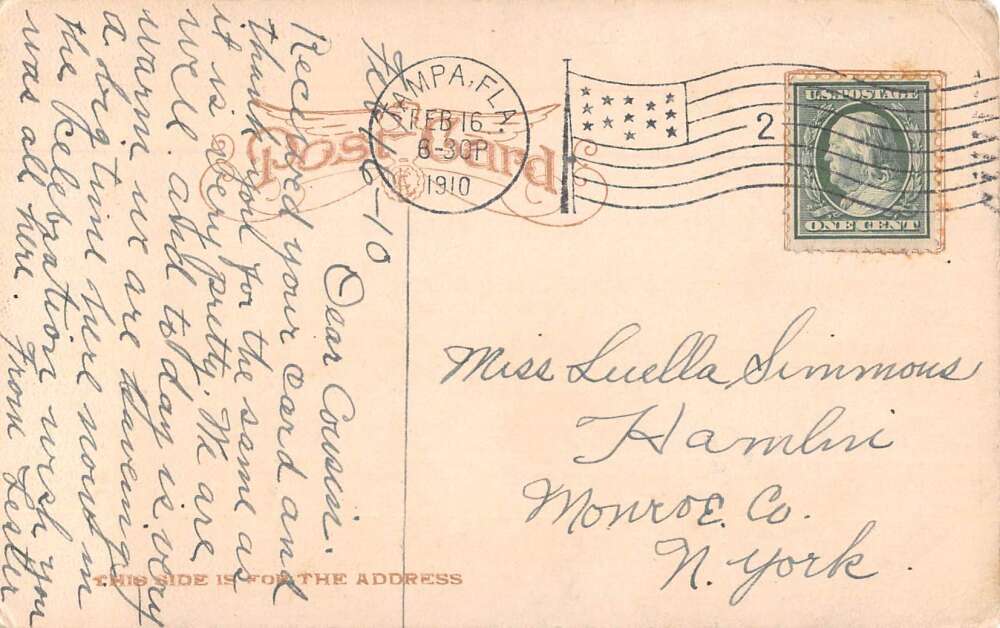 Post Card
TAMPA, FLA.
FEB 16
8-30P
1910
2
U.S. POSTAGE
ONE CENT
Feb. 16-10
Dear Cousin.
Received your card and
thank you for the same as
it is very pretty. We are
well and to day is very
warm we are haveing
a big time here now in
the Celebration wish you
was all here. From Lester
Miss Luella Simmons
Hamlin
Monroe. Co.
N. York.
THIS SIDE IS FOR THE ADDRESS